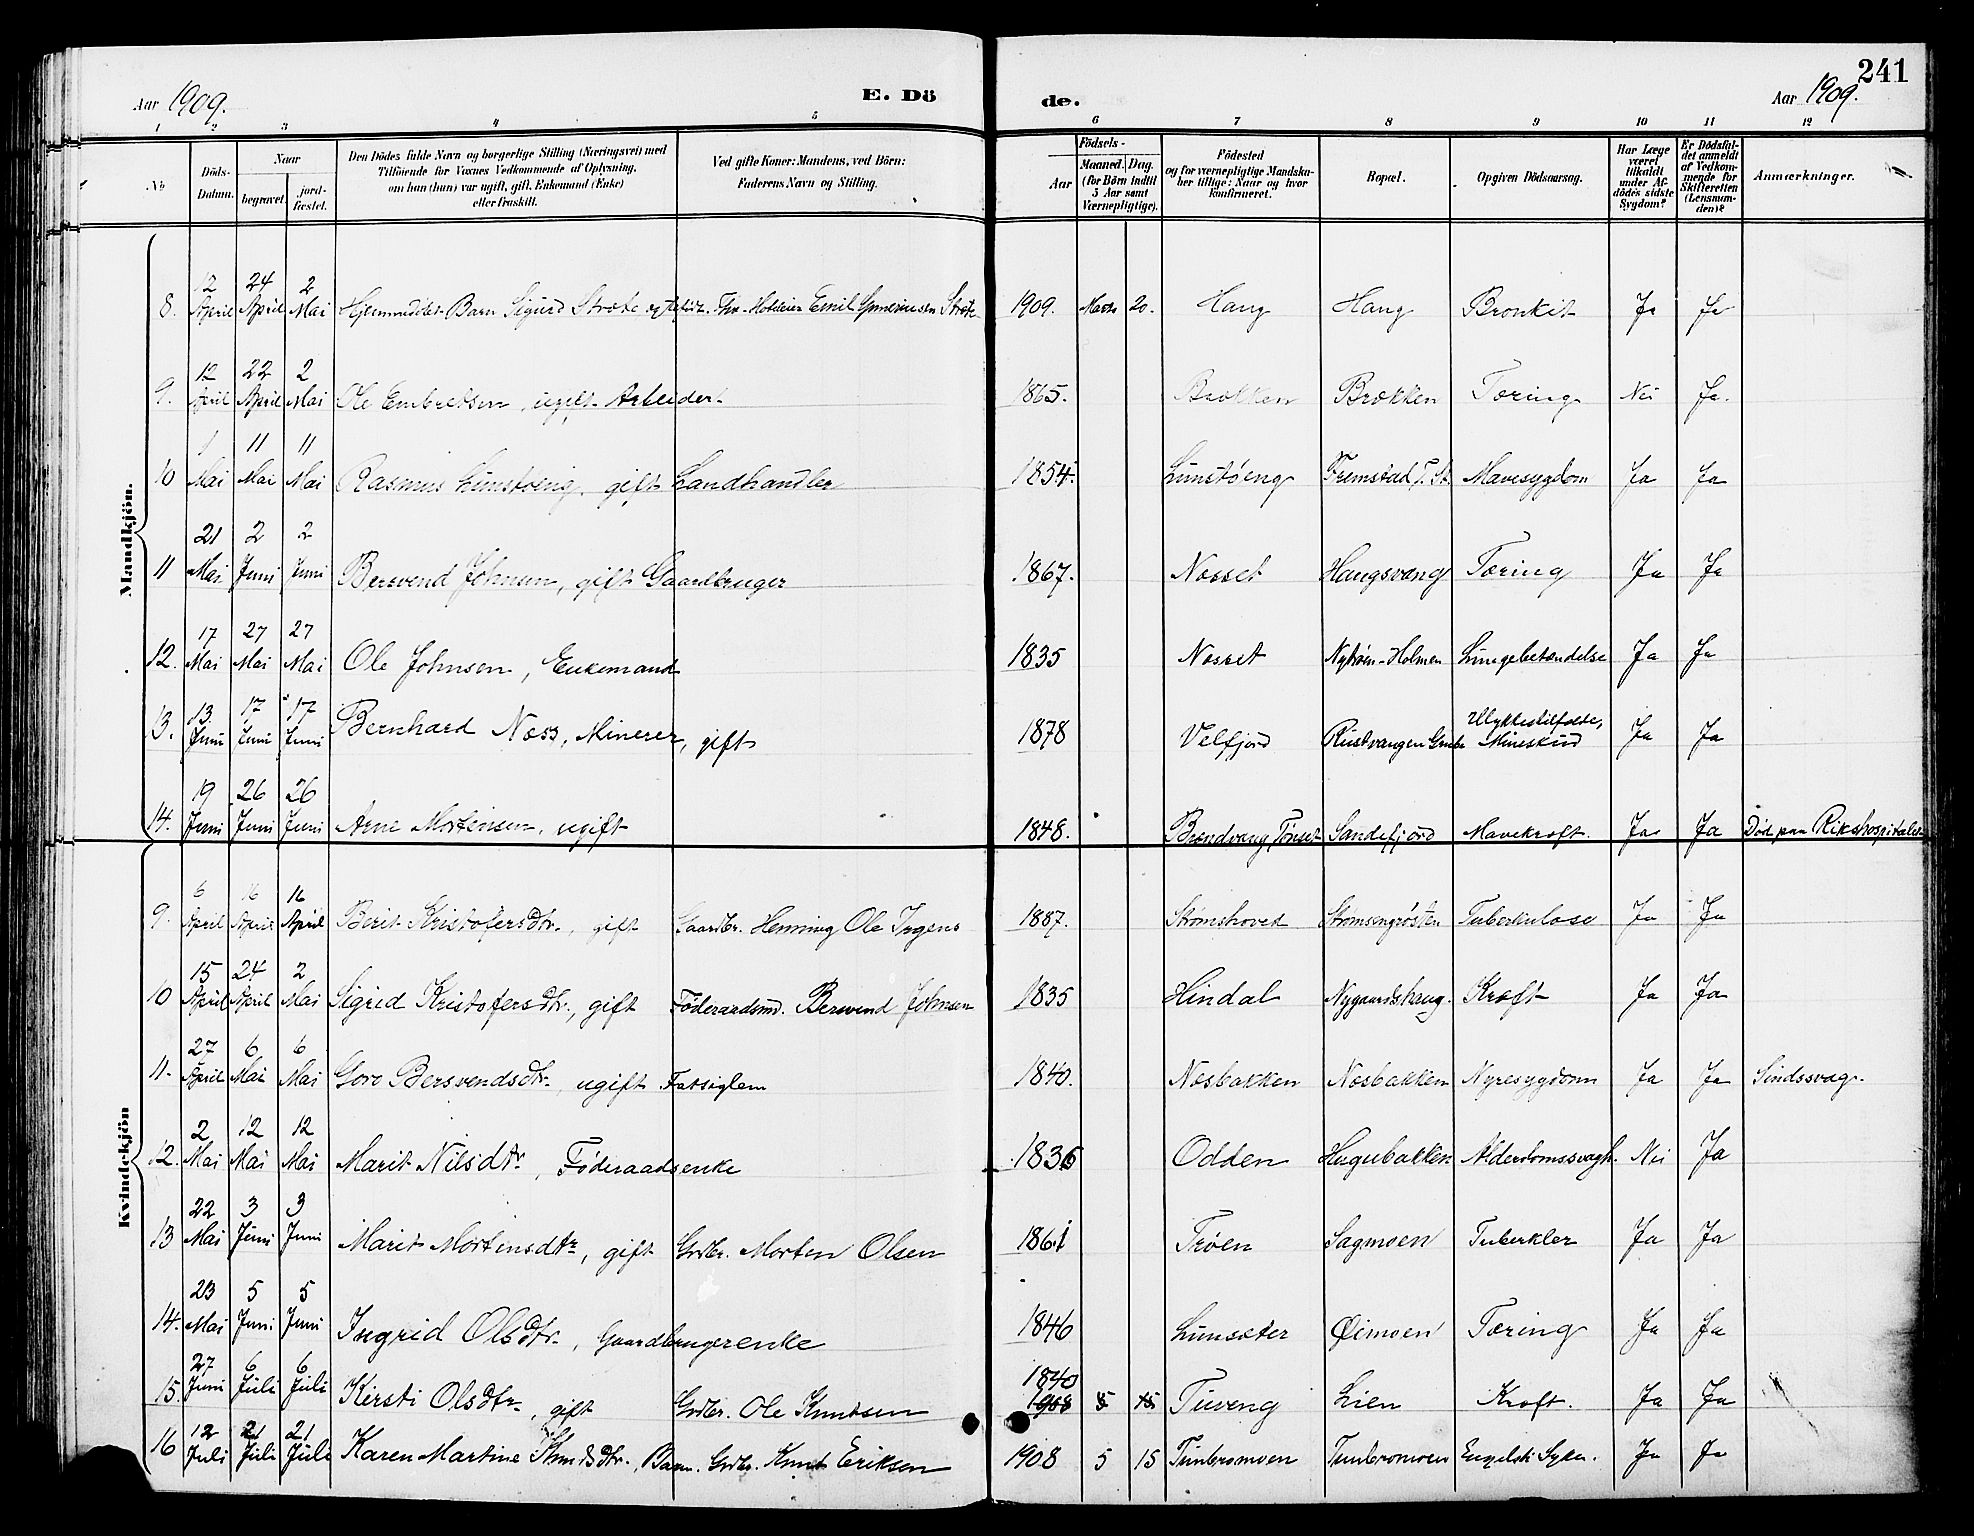 241
Aar 1909. E. Dö de. Aar 1909.
1 2 3 4 5 6 7 8 9 10 11 12
No
Döds-Datum.
Naar
begravet.
jord-fæstet.
Den Dödes fulde Navn og borgerlige Stilling (Næringsvei) med
Tilföiende for Voxnes Vedkommende af Oplysning,
om han (hun) var ugift, gift, Enkemand (Enke)
eller fraskilt.
Ved gifte Koner: Mandens, ved Börn:
Faderens Navn og Stilling.
Födsels-
Aar
Maaned. Dag.
(for Börn indtil
5 Aar samt
Værnepligtige).
Födested
og for værnepligtige Mandska-
ber tillige: Naar og hvor
konfirmeret.
Bopæl.
Opgiven Dödsaarsag.
Har Læge
været
tilkaldt
under Af-
dödes sidste
Sygdom?
Er Dödsfal-
det anmeldt
af Vedkom-
mende for
Skifteretten
(Lensman-
den)?
Anmærkninger.
Mandkjön.
8. 12 April 24 April 2 Mai Hjemmedöbt Barn Sigurd Strøte Emil Strøte 1909. Marts 20. Haug Haug Bronkit Ja Ja
9. 12 April 22 April 2 Mai Ole Embretsen, ugift Arbeider 1865. Brækken Brækken Tæring Nei Ja.
10 1 Mai 11 Mai 11 Mai Rasmus Lunstøeng, gift Landhandler 1854. Lunstøeng Fremstad T. St. Mavesygdom Ja Ja
11 21 Mai 2 Juni 2 Juni Bersvend Johnsen, gift Gaardbruger 1867. Næsset Haugsvang Tæring Ja Ja
12. 17 Mai 27 Mai 27 Mai Ole Johnsen, Enkemand 1835 Næsset Nytrøen-Holmen Lungebetændelse Ja Ja
13. 13 Juni 17 Juni 17 Juni Bernhard Næss, Minerer, gift 1878 Velfjord Rustvangen Grube Ulykkestilfælde, Mineskud Ja Ja
14. 19 Juni 26 Juni 26 Juni Arne Mortensen, ugift 1848. Brændvang Tönset Sandefjord Mavekræft. Ja Ja Död paa Rikshospitalet
Kvindekjön
9. 6 April 16 April 16 April Berit Kristofersdtr., gift Gaardbr. Henning Ole Ingens 1887. Strømshoved Strømsengrösten Tuberkulose Ja Ja
10 15 April 24 April 2 Mai Sigrid Kristofersdtr., gift Föderaadsmd. Bersvend Johnsen 1835 Hindal Nygaardshaug. Kræft Ja Ja
11. 27 April 6 Mai 6 Mai Goro Bersvendsdtr., ugift Fatsiglem 1840. Næsbakken Næsbakken Nyresygdom Ja Ja Sindssvag.
12. 2 Mai 12 Mai 12 Mai Marit Nilsdtr, Föderaadsenke 1836 Odden Haugubakken Alderdomssvagh. Nei Ja
13 22 Mai 3 Juni 3 Juni Marit Mortensdtr, gift Grdbr. Morten Olsen 1861 Trøen Sagmoen Tuberkler Ja Ja
14. 23 Mai 5 Juni 5 Juni Ingrid Olsdtr., Gaardbrugerenke 1846 Lunsæter Öimoen Tæring Ja Ja
15. 27 Juni 6 Juli 6 Juli Kirsti Olsdtr., gift Grdbr. Ole Knudsen 1840 1908 5 15 Tuveng Lien Kræft. Ja Ja
16 12 Juli 21 Juli 21 Juli Karen Martine Knudsdtr., Barn. Grdbr. Knut Eriksen 1908 5 15 Tunbromoen Tunbromoen Engelsk Syke. Ja Ja